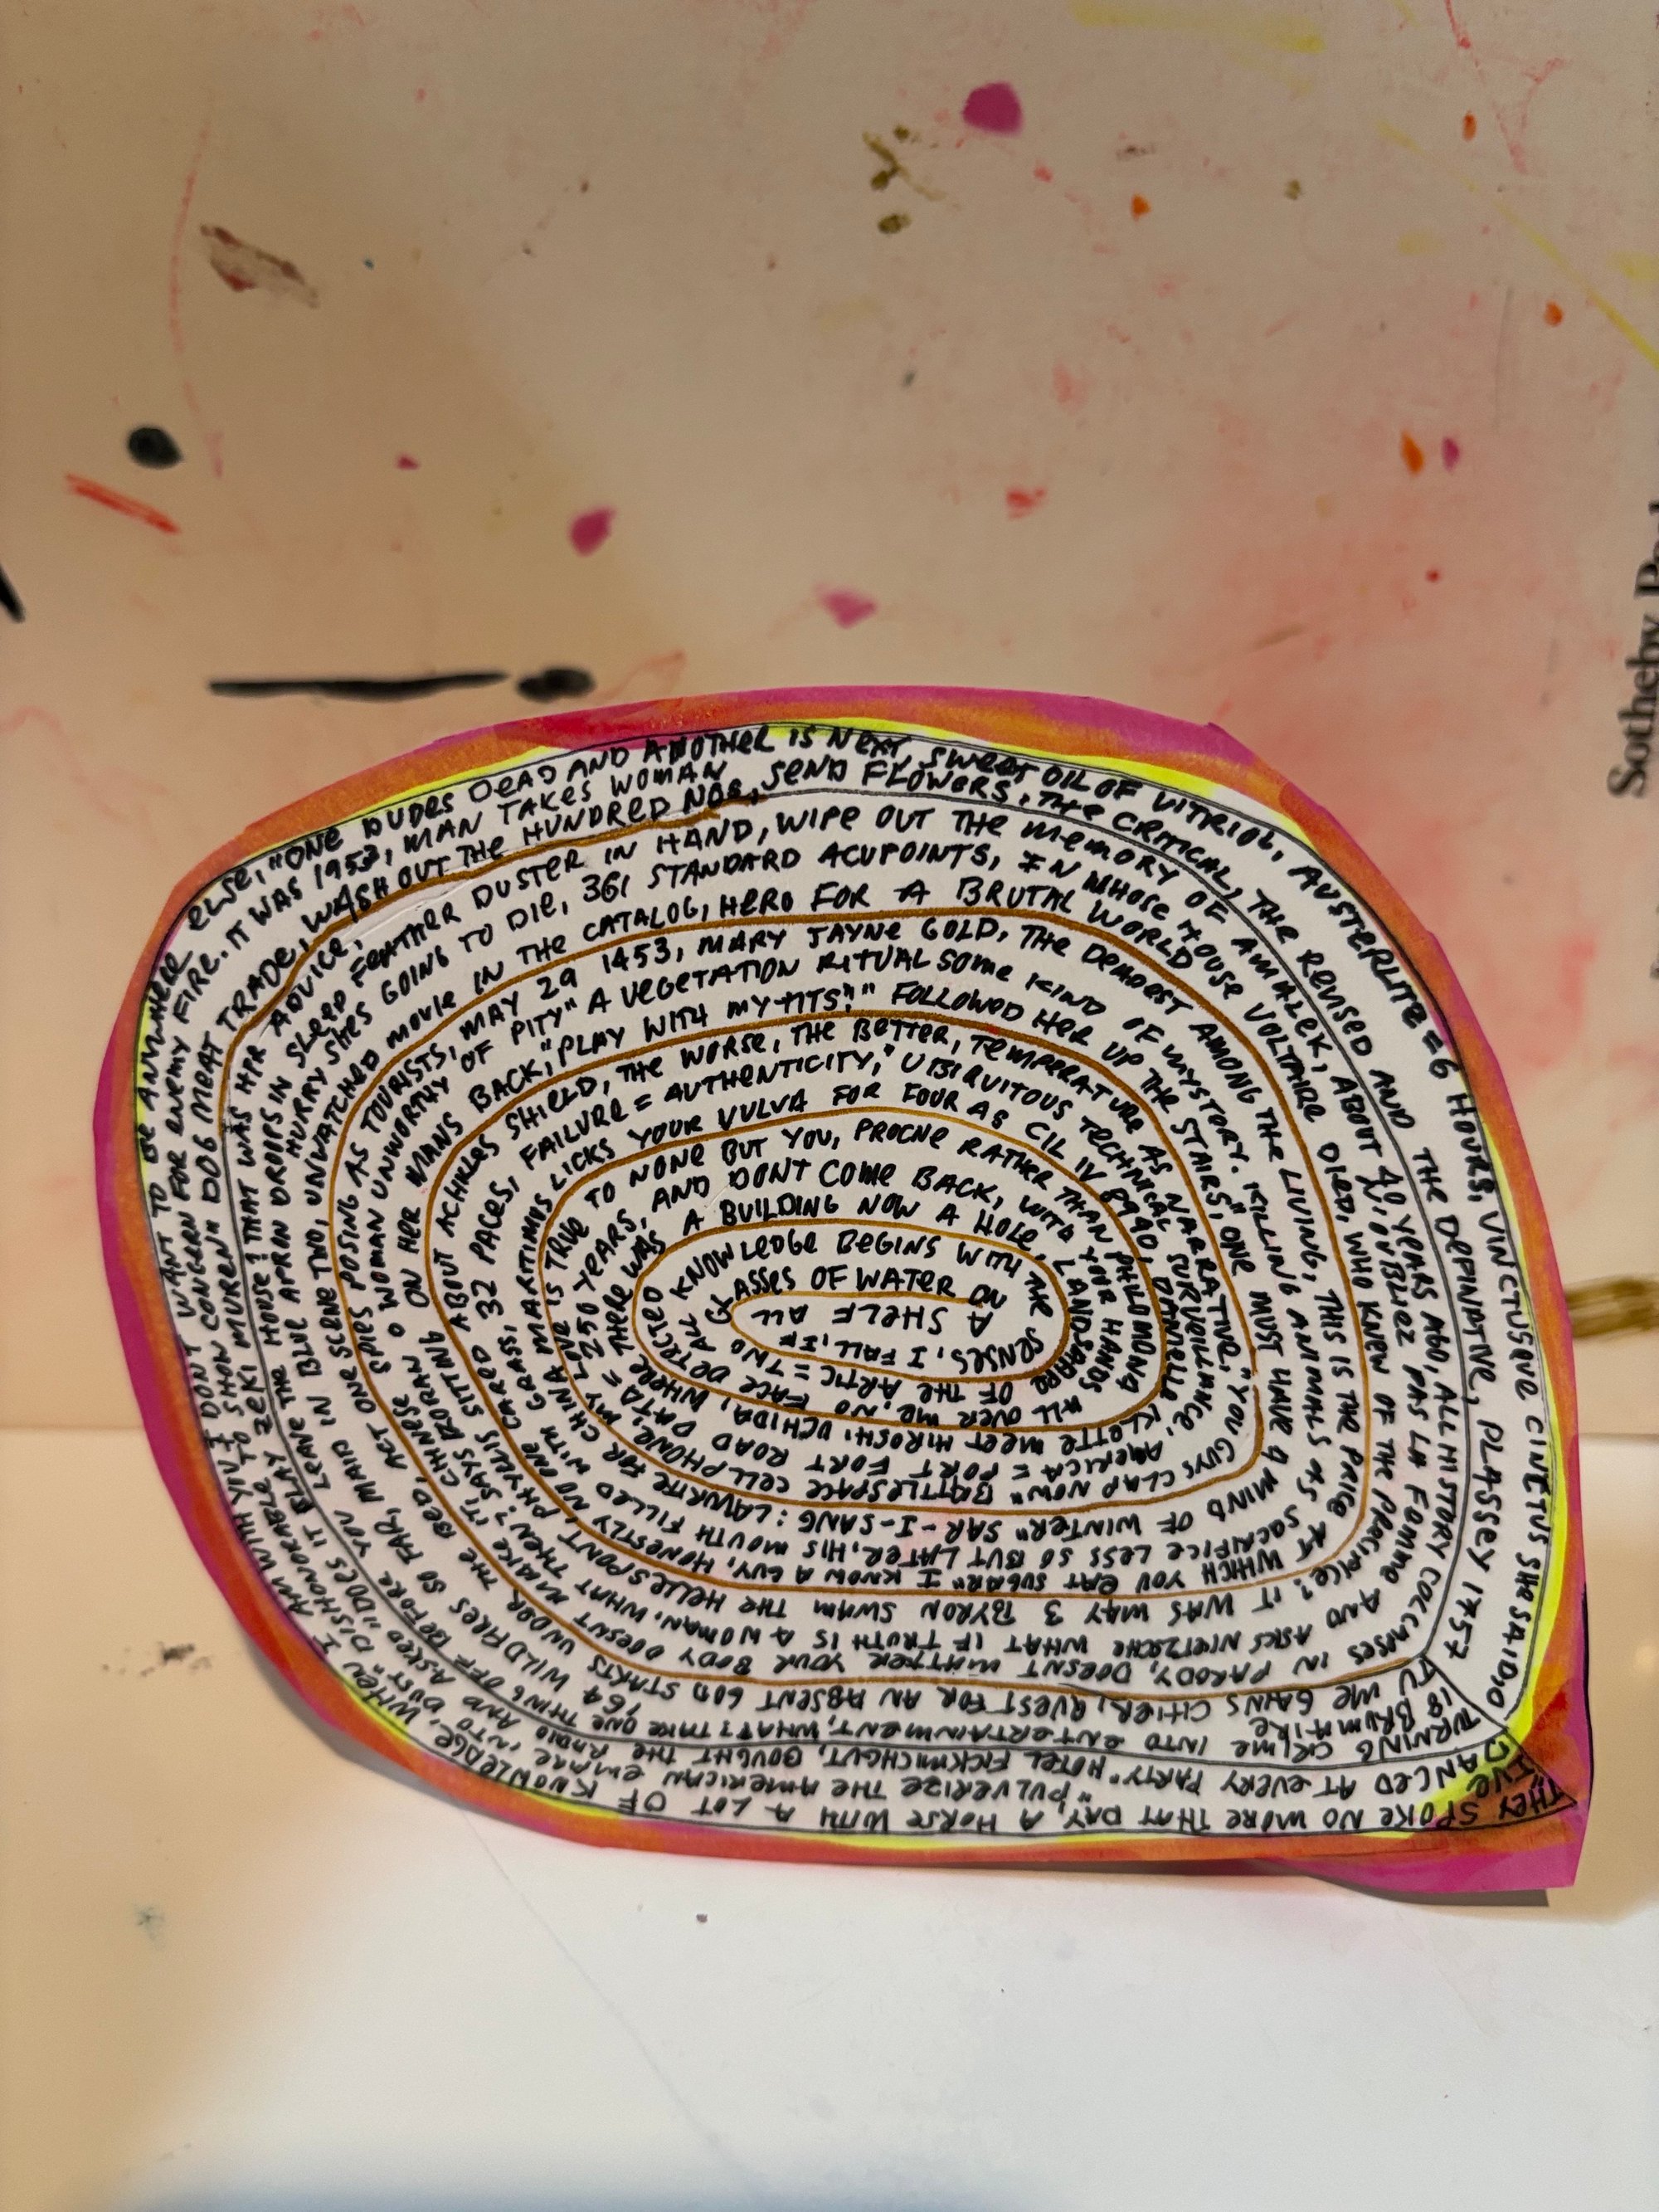 THEY SPOKE NO MORE THAT DAY, A HORSE WITH A LOT OF KNOWLEDGE, WHEN I AM WITH YOU I DONT WANT TO BE ANYWHERE ELSE, "ONE DUDES DEAD AND ANOTHER IS NEXT, SWEET OIL OF VITRIOL, AUSTERLITZ = 6 HOURS, VINCTUSQVE CINCTUS SHE SAID IO
"I'VE DANCED AT EVERY PARTY" "PULVERIZE THE AMERICAN EMPIRE INTO DUST" DISHONORABLE TO SHOW CONCERN FOR ENEMY FIRE. IT WAS 1953, MAN TAKES WOMAN
HOTEL FICKMICHGUT, BOUGHT THE RADIO AND ASKED "DOES IT PLAY ZEKI MUREN" DOG MEAT TRADE, WASH OUT THE HUNDRED NOS, SEND FLOWERS, THE CRITICAL, THE REVISED AND THE DEFINITIVE, PLASSEY 1757
TURNING CRIME INTO ENTERTAINMENT, WHAT? TAKE ONE THING OFF BEFORE YOU LEAVE THE HOUSE! THAT WAS HER ADVICE,
FEATHER DUSTER IN HAND, WIPE OUT THE MEMORY OF AMALEK, ABOUT 40 YEARS AGO, ALL HISTORY COLLAPSES IN PARODY
18 BRUMAIRE
TU ME GANS CHIER, QUEST FOR AN ABSENT GOD STARTS 164 WILDFIRES SO FAR, MAID IN BLUE APRON DROPS IN SLEEP
HURRY SHES GOING TO DIE, 361 STANDARD ACUPOINTS, IN WHOSE HOUSE VOLTAIRE DIED, WHO KNEW OF THE PRECIPICE?
N'OUBLIEZ PAS LA FEMME AND ASKS NIETZSCHE WHAT IF TRUTH IS A WOMAN, WHAT THEN?
DOESNT MATTER YOUR BODY DOESNT MAKE IT, SAYS
UNDER THE BED, ACT ONE SCENE TWO, UNWATCHED MOVIE IN THE CATALOG, HERO FOR A BRUTAL WORLD
CHINESE SPIES POSING AS TOURISTS, MAY 29 1453, MARY JAYNE GOLD, THE DEADEST AMONG THE LIVING, THIS IS THE PRICE AT WHICH YOU EAT SUGAR"
IT WAS MAY 3 BYRON SWAM THE HELLESPONT, PHYLLIS SITTING ON HER MANS BACK, "PLAY WITH MY TITS!" FOLLOWED HER UP THE STAIRS"
WOMAN UNWORTHY OF PITY" A VEGETATION RITUAL SOME KIND OF MYSTORY. KILLING ANIMALS AS SACRIFICE LESS SO BUT LATER, HIS MOUTH FILLED WITH GRASS,
I KNOW A GUY, HONESTLY NO ONE CARED ABOUT ACHILLES SHIELD, THE WORSE, THE BETTER, TEMPERATURE AS NARRATIVE,"
ONE MUST HAVE A MIND OF WINTER" SAR-I-SANG: LAZURITE FOR CHINA
32 PACES, FAILURE = AUTHENTICITY," UBIQUITOUS TECHNICAL SURVEILLANCE,
"YOU GUYS CLAP NOW" BATTLESPACE CELLPHONE,
MARITIMUS LICKS YOUR VULVA FOR FOUR AS CIL IV 8940, DANIELLE KLETTE MEET HIROSHI UCHIDA, WHERE
MY LOVE IS TRUE TO NONE BUT YOU, PROCNE RATHER THAN PHILOMONA
AMERICA = FORT ROAD DATA =
250 YEARS, AND DONT COME BACK, WITH YOUR HANDS ALL OVER ME, NO FACE DETECTED
THERE WAS A BUILDING NOW A HOLE, LANDSHARK OF THE ARTIC = TWO
ALL KNOWLEDGE BEGINS WITH THE SENSES, I FALL, IF
GLASSES OF WATER ON A SHELF ALL
Sotheby